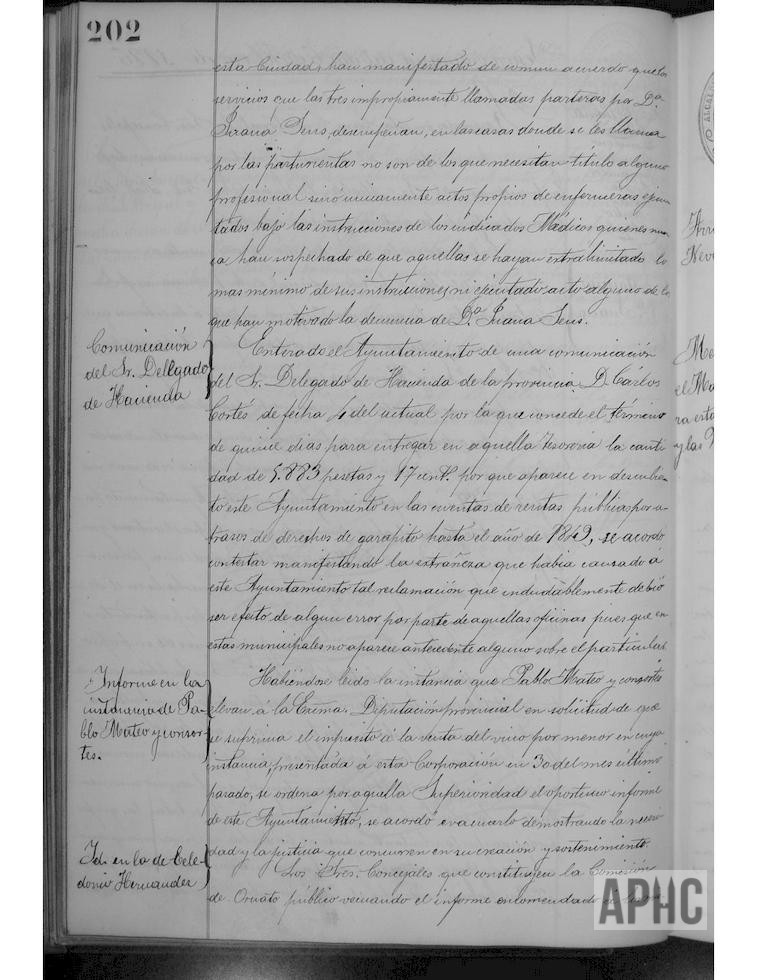 202
esta Ciudad, han manifestado de comun acuerdo que los
servicios que las tres impropiamente llamadas parteras por D.ª
Juana Sens, desempeñan, en las casas donde se les llama
por las parturientas no son de los que necesitan título alguno
profisional sinó unicamente actos propios de enfermeras ejecu
tados bajo las instrucciones de los indicados Médicos quienes nun
ca han sospechado de que aquellas se hayan extralimitado lo
mas mínimo de sus instrucciones, ni ejecutado acto alguno de lo
que han motivado la denuncia de D.ª Juana Sens.
Comunicación
del Sr. Delegado
de Hacienda
Enterado el Ayuntamiento de una comunicación
del Sr. Delegado de Hacienda de la provincia D. Cárlos
Cortés de fecha 4 del actual por la que concede el término
de quince dias para entregar en aquella Tesoreria la canti
dad de 5.883 pesetas y 17 cent.s por que aparece en descubier
to este Ayuntamiento en las cuentas de rentas públicas por a-
trasos de derechos de garapito hasta el año de 1849, se acordo
contestar manifestando la extrañeza que habia causado á
este Ayuntamiento tal reclamación que indudablemente debió
ser efecto de algun error por parte de aquellas oficinas pues que en
estas municipales no aparece antecedente alguno sobre el particular
Informe en la
instancia de Pa-
blo Mateo y consor-
tes.
Habiéndose leido la instáncia que Pablo Mateo y consortes
elevan á la Exma. Diputación provincial en solicitud de que
se suprima el impuesto á la venta del vino por menor en cuya
instancia, presentada á esta Corporación en 30 del mes último
pasado, se ordena por aquella Superioridad el oportuno informe
de este Ayuntamiento, se acordó evacuarlo demostrando la necesi
dad y la justicia que concurren en su creación y sostenimiento.
Id. en la de Cele-
donio Hernandez
Los Sres. Concejales que constituyen la Comisión
de Ornato público evacuando el informe encomendado á
APHC
ALCAL
Nev
Mo
el Ma
ra esta
y las